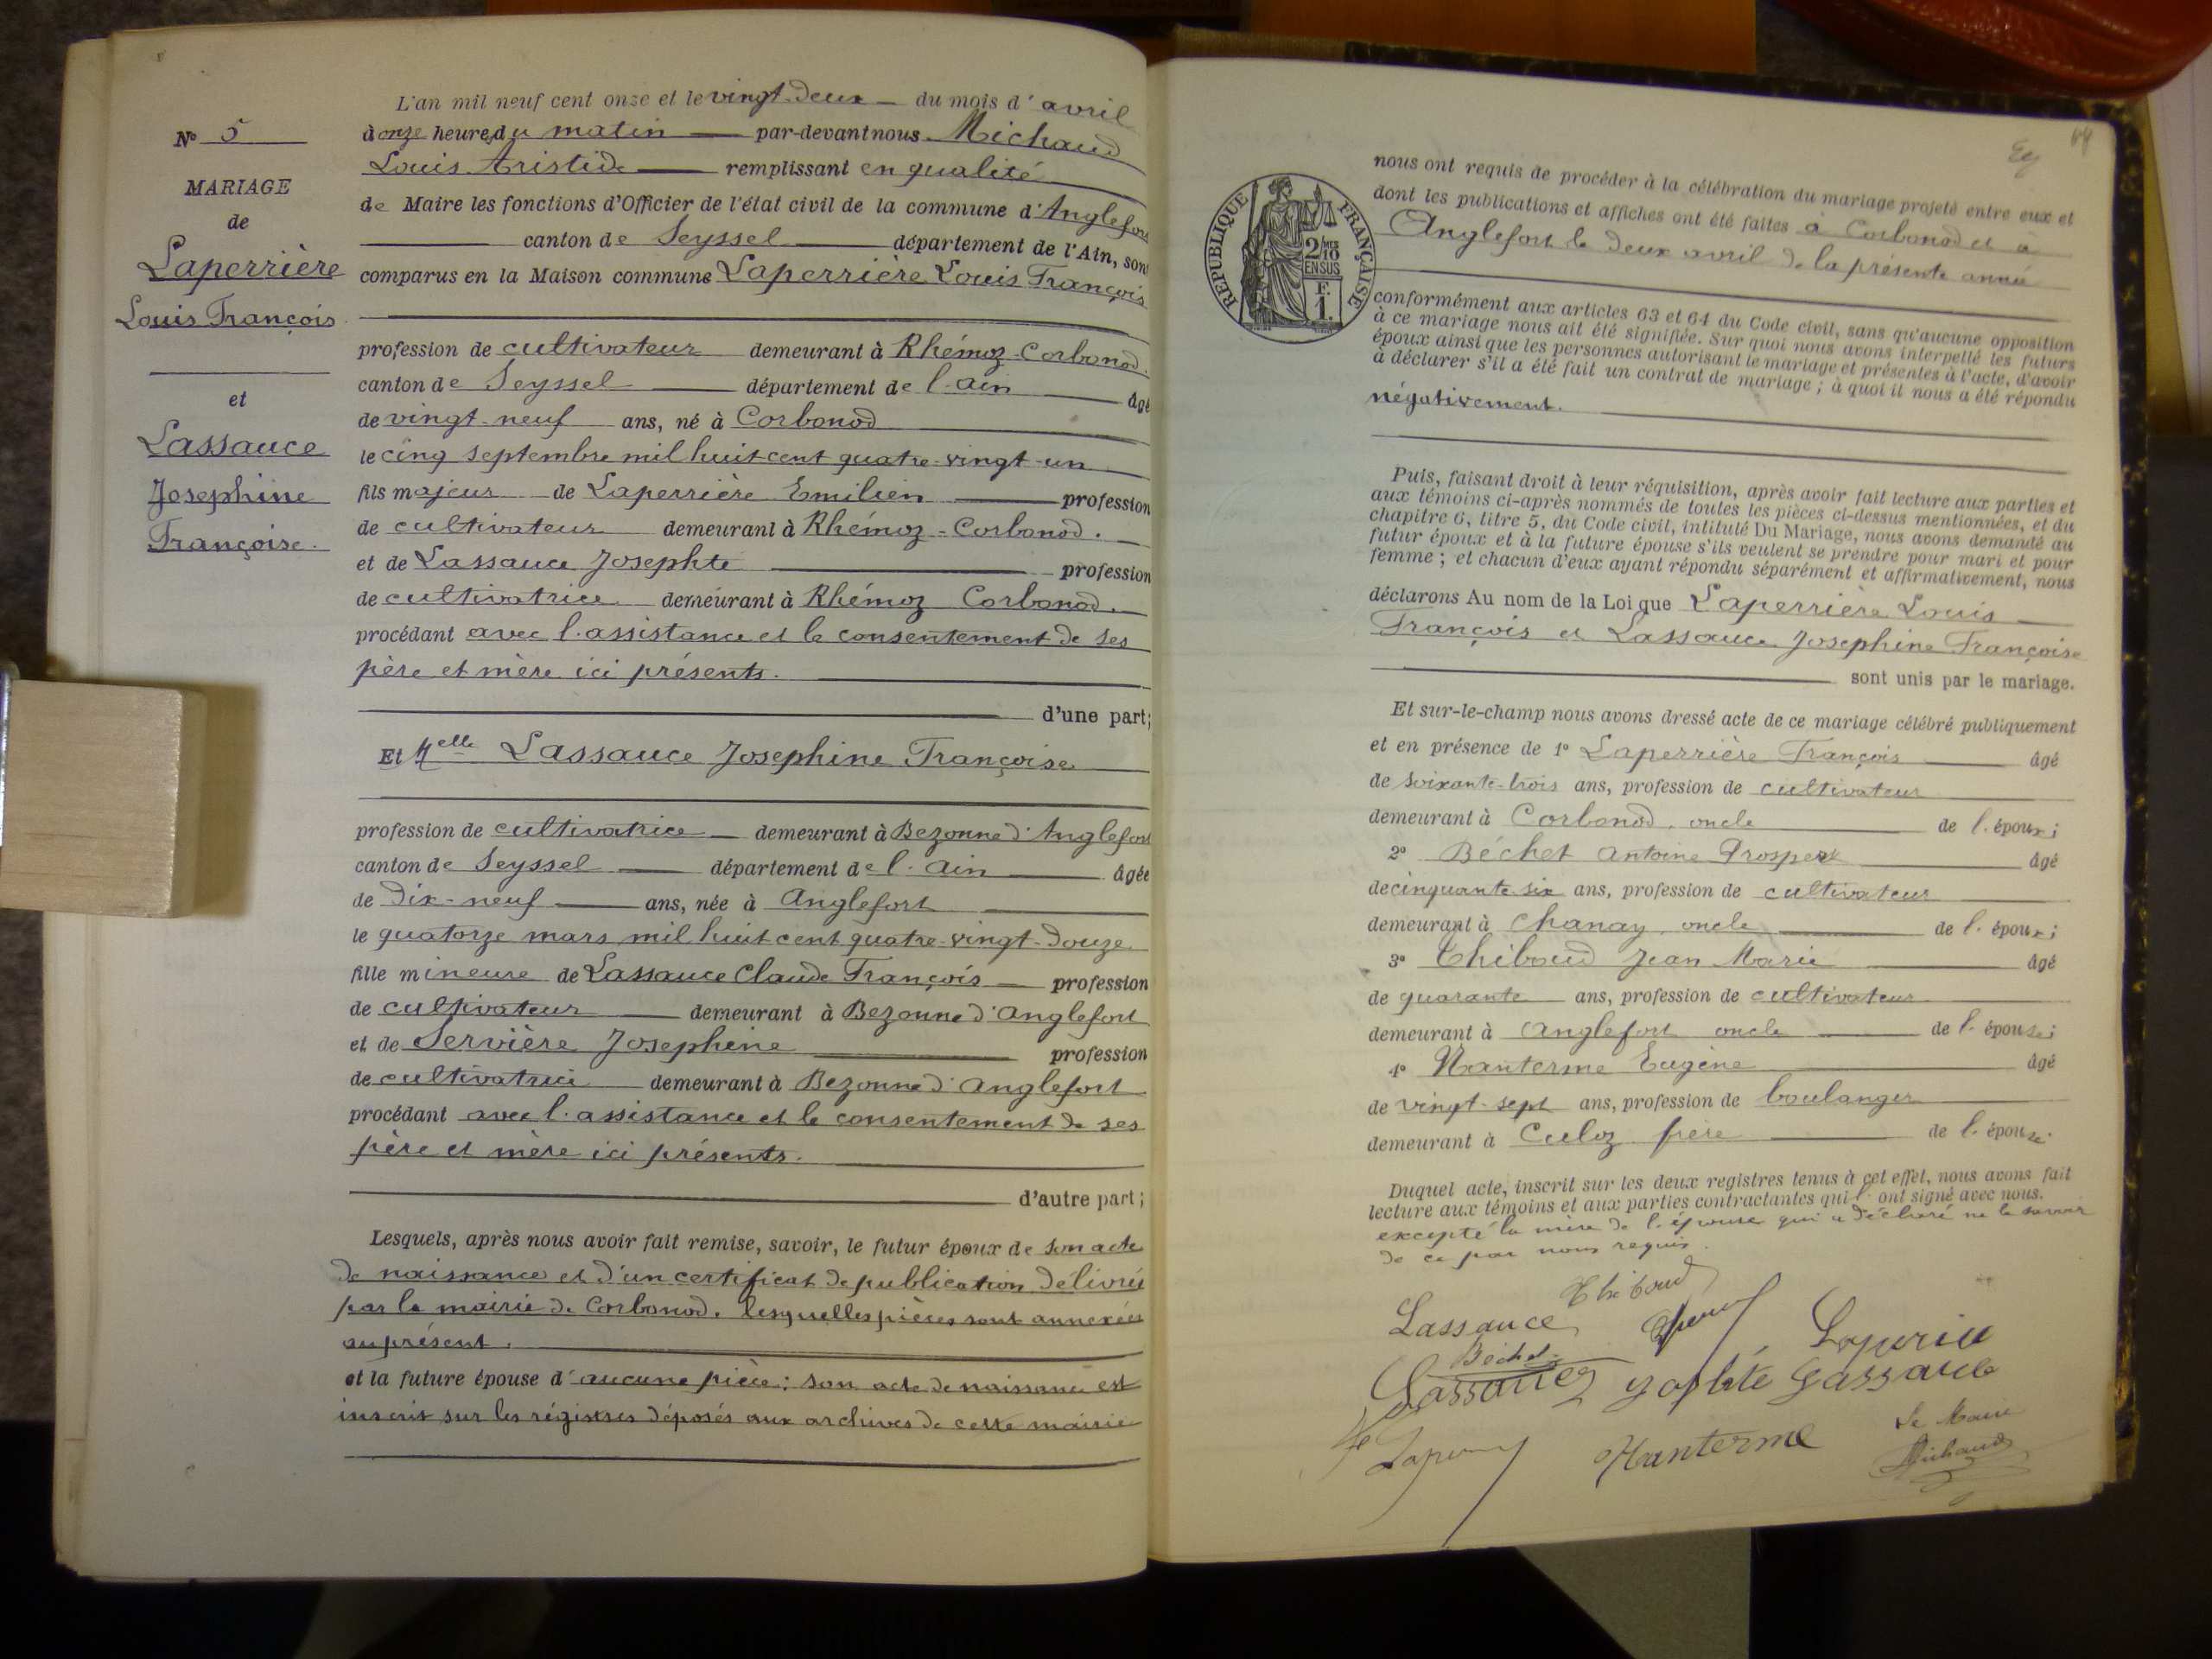 N° 5
MARIAGE
de
Laperrière
Louis François
et
Lassauce
Josephine
Françoise.
L'an mil neuf cent onze et le vingt-deux du mois d'avril
à onze heures du matin par-devant nous Michaud
Louis Aristide remplissant en qualité
de Maire les fonctions d'Officier de l'état civil de la commune d'Anglefort
canton de Seyssel département de l'Ain, sont
comparus en la Maison commune Laperrière Louis François
profession de cultivateur demeurant à Rhémoz-Corbonod.
canton de Seyssel département de l'Ain âgé
de vingt-neuf ans, né à Corbonod
le cinq septembre mil huit cent quatre-vingt-un
fils majeur de Laperrière Emilien profession
de cultivateur demeurant à Rhémoz-Corbonod.
et de Lassauce Josephte profession
de cultivatrice demeurant à Rhémoz Corbonod.
procédant avec l'assistance et le consentement de ses
père et mère ici présents.
d'une part;
Et Melle Lassauce Josephine Françoise
profession de cultivatrice demeurant à Bezonne d'Anglefort
canton de Seyssel département de l'Ain âgée
de dix-neuf ans, née à Anglefort
le quatorze mars mil huit cent quatre-vingt-douze
fille mineure de Lassauce Claude François profession
de cultivateur demeurant à Bezonne d'Anglefort
et de Servière Josephine profession
de cultivatrice demeurant à Bezonne d'Anglefort
procédant avec l'assistance et le consentement de ses
père et mère ici présents.
d'autre part;
Lesquels, après nous avoir fait remise, savoir, le futur époux de son acte
de naissance et d'un certificat de publication délivrés
par la mairie de Corbonod, lesquelles pièces sont annexées
au présent.
et la future épouse d'aucune pièce: son acte de naissance est
inscrit sur les régistres déposés aux archives de cette mairie
RÉPUBLIQUE FRANÇAISE
2/10
EN SUS
F.
1.
nous ont requis de procéder à la célébration du mariage projeté entre eux et
dont les publications et affiches ont été faites à Corbonod et à
Anglefort le deux avril de la présente année
conformément aux articles 63 et 64 du Code civil, sans qu'aucune opposition
à ce mariage nous ait été signifiée. Sur quoi nous avons interpellé les futurs
époux ainsi que les personnes autorisant le mariage et présentes à l'acte, d'avoir
à déclarer s'il a été fait un contrat de mariage; à quoi il nous a été répondu
négativement.
Puis, faisant droit à leur réquisition, après avoir fait lecture aux parties et
aux témoins ci-après nommés de toutes les pièces ci-dessus mentionnées, et du
chapitre 6, titre 5, du Code civil, intitulé Du Mariage, nous avons demandé au
futur époux et à la future épouse s'ils veulent se prendre pour mari et pour
femme; et chacun d'eux ayant répondu séparément et affirmativement, nous
déclarons Au nom de la Loi que Laperrière Louis
François et Lassauce Josephine Françoise
sont unis par le mariage.
Et sur-le-champ nous avons dressé acte de ce mariage célébré publiquement
et en présence de 1° Laperrière François âgé
de soixante-trois ans, profession de cultivateur
demeurant à Corbonod, oncle de l'époux;
2° Béchet Antoine Prosper âgé
de cinquante-six ans, profession de cultivateur
demeurant à Chanay, oncle de l'époux;
3° Thiboud Jean Marie âgé
de quarante ans, profession de cultivateur
demeurant à Anglefort oncle de l'épouse;
4° Nanterme Eugène âgé
de vingt-sept ans, profession de boulanger
demeurant à Culoz frère de l'épouse
Duquel acte, inscrit sur les deux registres tenus à cet effet, nous avons fait
lecture aux témoins et aux parties contractantes qui l'ont signé avec nous.
excepté la mère de l'épouse qui a déclaré ne le savoir
de ce par nous requis.
Thiboud
Lassauce
Béchet
Lassauce
Nanterme
Le Maire
Michaud